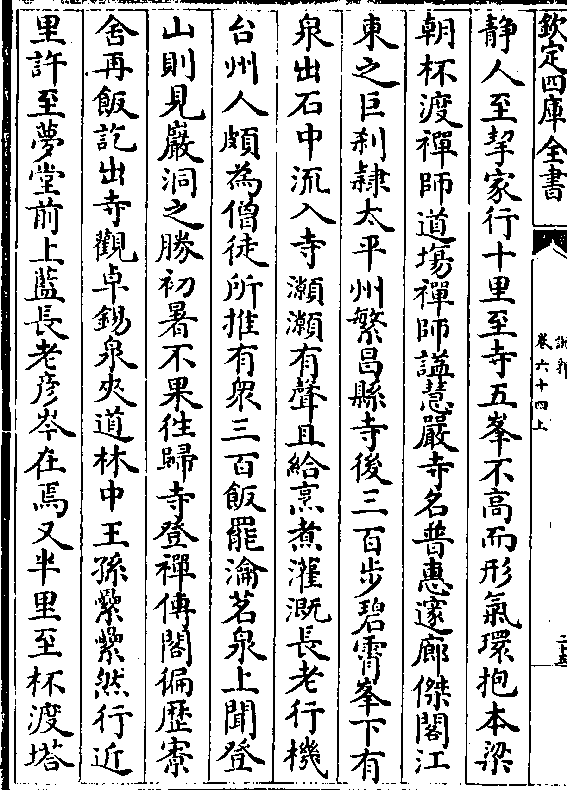 欽定四庫全書
說郛
卷六十四上
静人至挈家行十里至寺五峯不高而形氣環抱本梁
朝杯渡禪師道場禪師諡慧嚴寺名普惠邃廊傑閣江
東之巨刹隸太平州繁昌縣寺後三百步碧霄峯下有
泉出石中流入寺瀬瀬有聲且給烹煮灌溉長老行機
台州人頗為僧徒所推有衆三百飯罷瀹茗泉上聞登
山則見巖洞之勝初暑不果徃歸寺登禪傳閣徧歴寮
舍再飯訖出寺觀卓錫泉夾道林中王孫纍纍然行近
里許至夢堂前上藍長老彦岑在焉又半里至杯渡塔